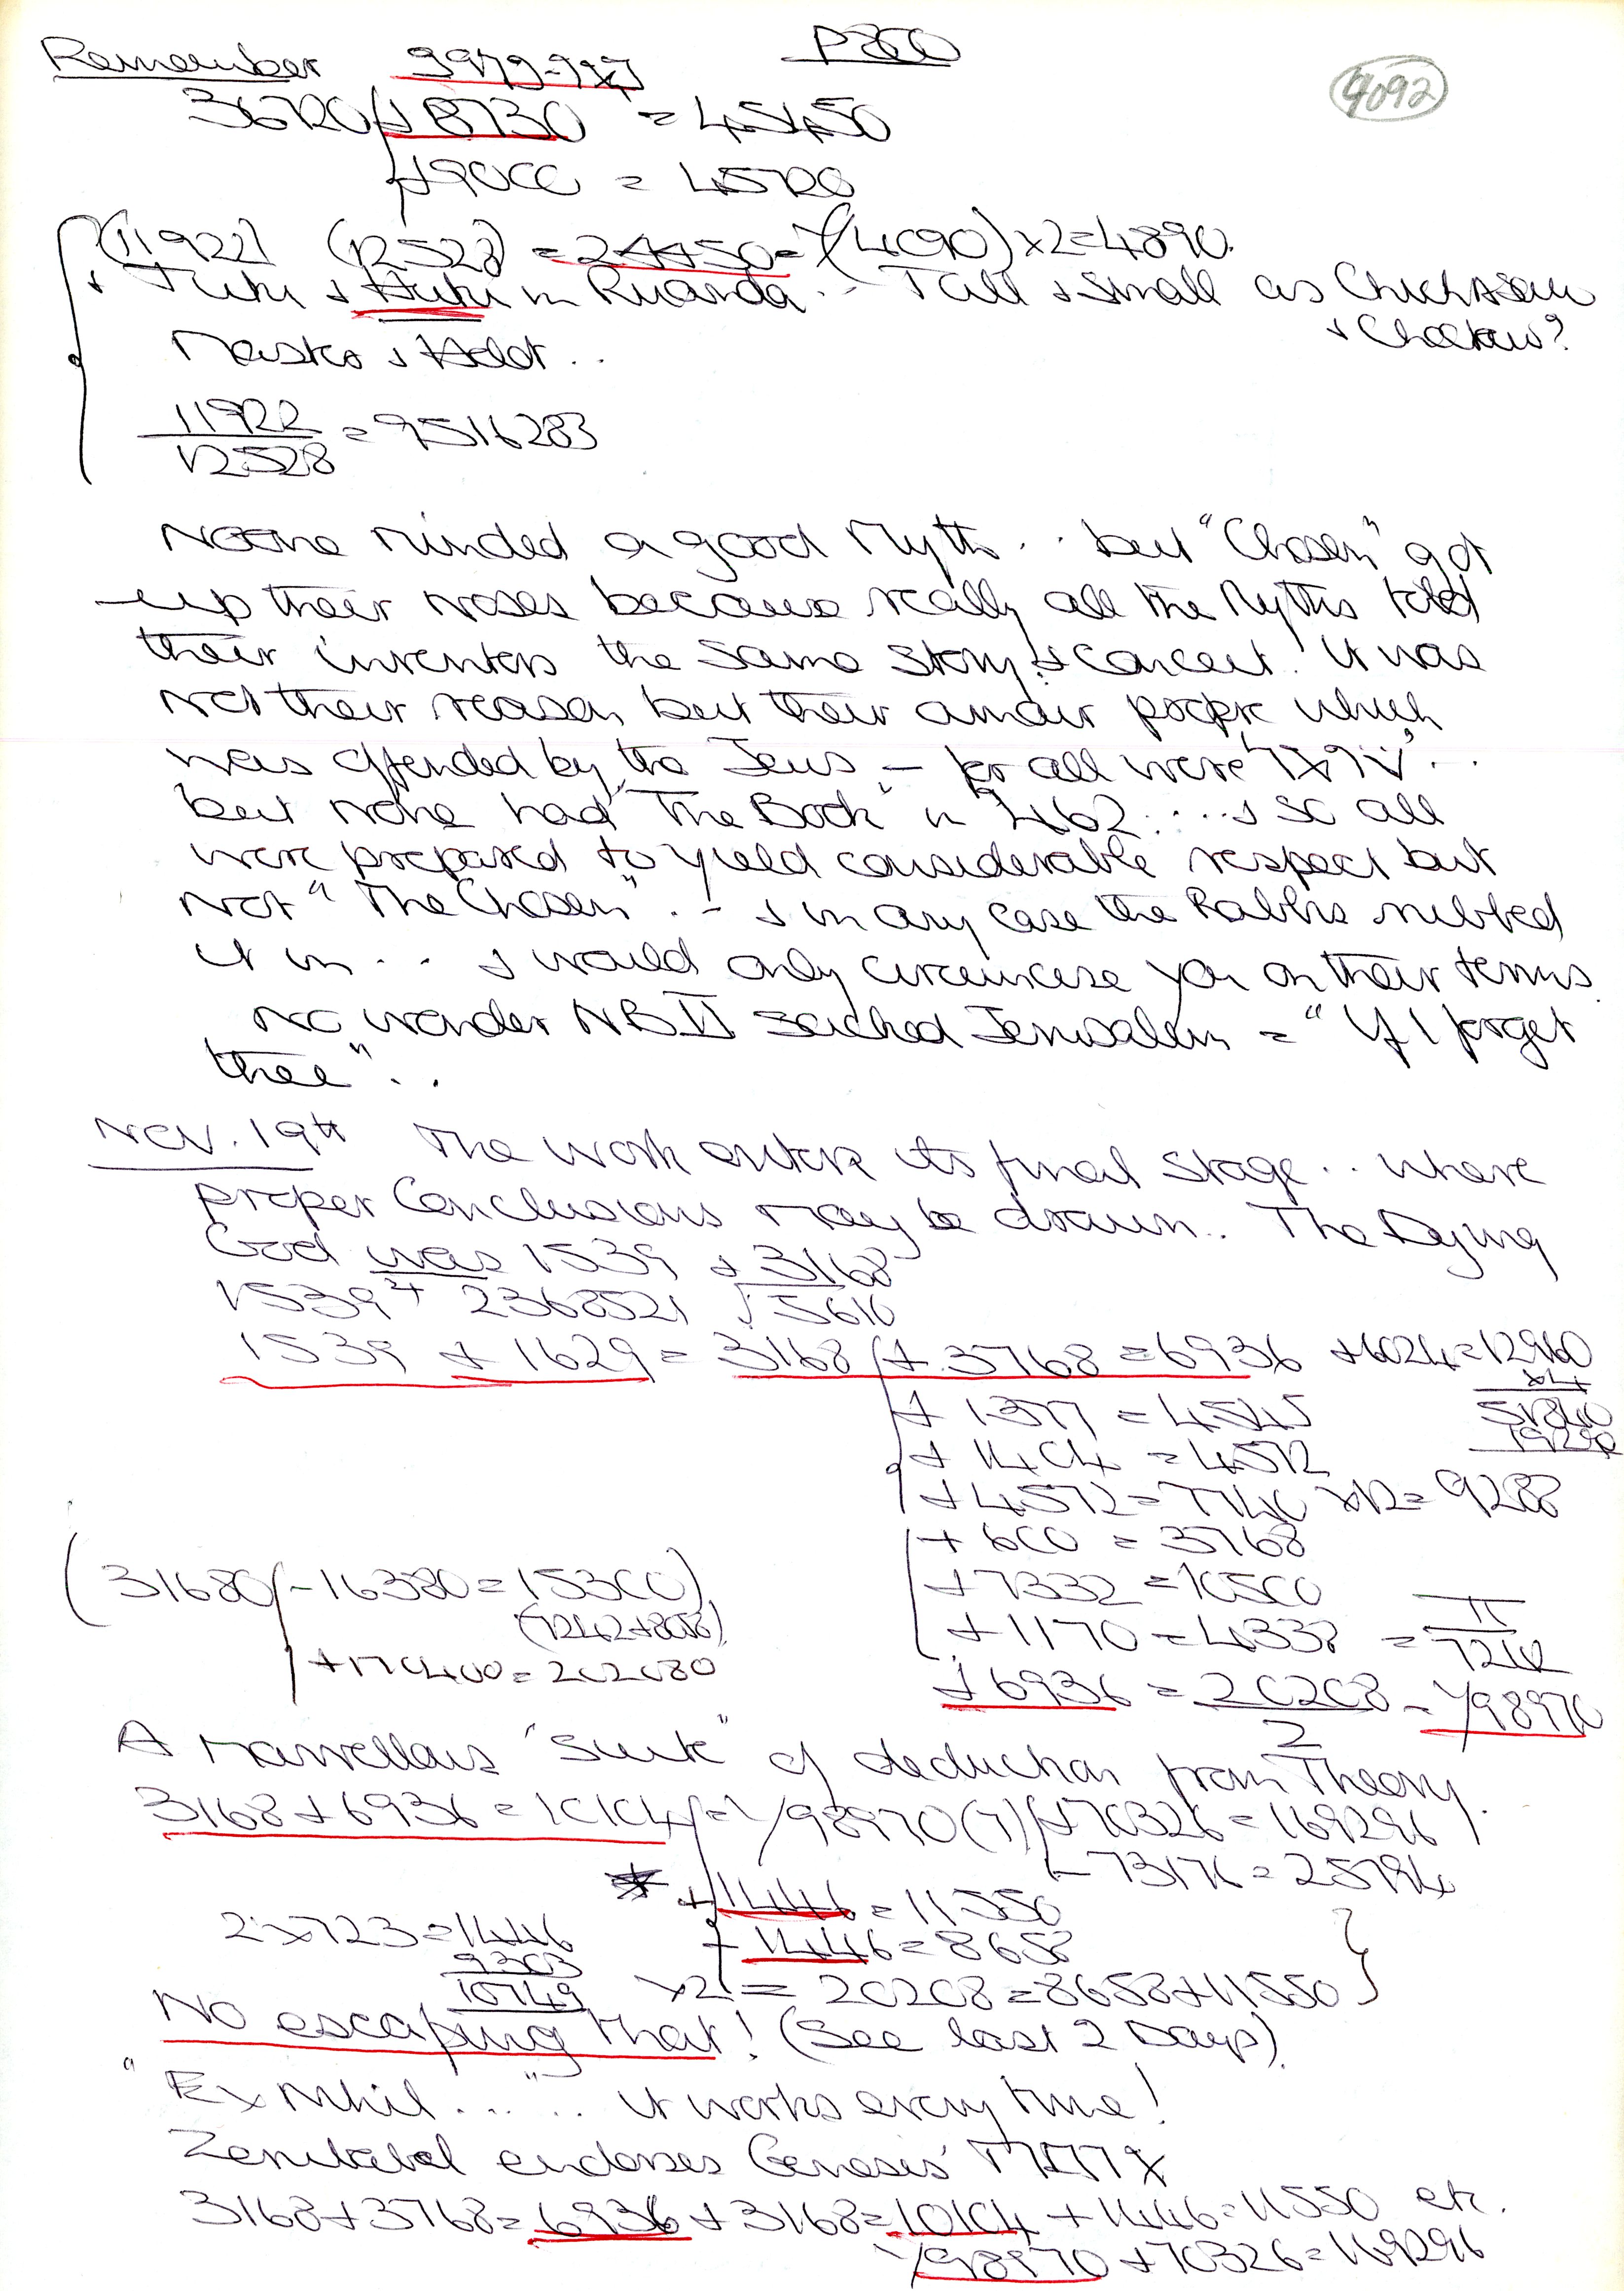 Remember 3979-927 P360
4092
36720 + 8730 = 45450
+ 9000 = 45720
(11922) (12528) = 24450 = 1/(4090) x 2 = 4890.
+ Tutu + Hutu in Ruanda.. Tall + small as Chichasaw
+ Choctaw?
Master + Helot..
11922
12528 = 9516283
No one minded a good Myth.. but "Chosen" got
up their noses because really all the Myths told
their inventors the same story & conceit! It was
not their reason but their amour propre which
was offended by the Jews - for all were
but none had "The Book" in 462.... & so all
were prepared to yield considerable respect but
not "The Chosen".. - & in any case the Rabbis rubbed
it in... & would only circumcise you on their terms.
No wonder NB II sacked Jerusalem = "If I forget
thee"..
Nov. 19th The work enters its final stage.. where
proper Conclusions may be drawn. The Dying
God was 1539 + 3168
1539² 2368521 √5610
1539 + 1629 = 3168 + 3768 = 6936 + 6024 = 12960
x 4
+ 1377 = 4545 51840
+ 1404 = 4572
+ 4572 = 7740 x 12 = 9288
+ 600 = 3768
(31680 - 16380 = 15300) + 7332 = 10500
(7242 + 8058) + 1170 = 4338 = π
+ 170400 = 202080
+ 6936 = 20208 = 1/98970
2
A marvellous "suite" of deduction from Theory.
3168 + 6936 = 10104 = 1/98970(7) + 70326 = 169296
- 73176 = 25794
* + 1446 = 11550
2 x 723 = 1446 - 1446 = 8658
9303
10749 x 2 = 20208 = 8658 + 11550
No escaping that! (See last 2 Days).
"Ex Nihil....." it works every time!
Zerubabel endorses Genesis'
3168 + 3768 = 6936 + 3168 = 10104 + 1446 = 11550 etc.
1/98970 + 70326 = 169296